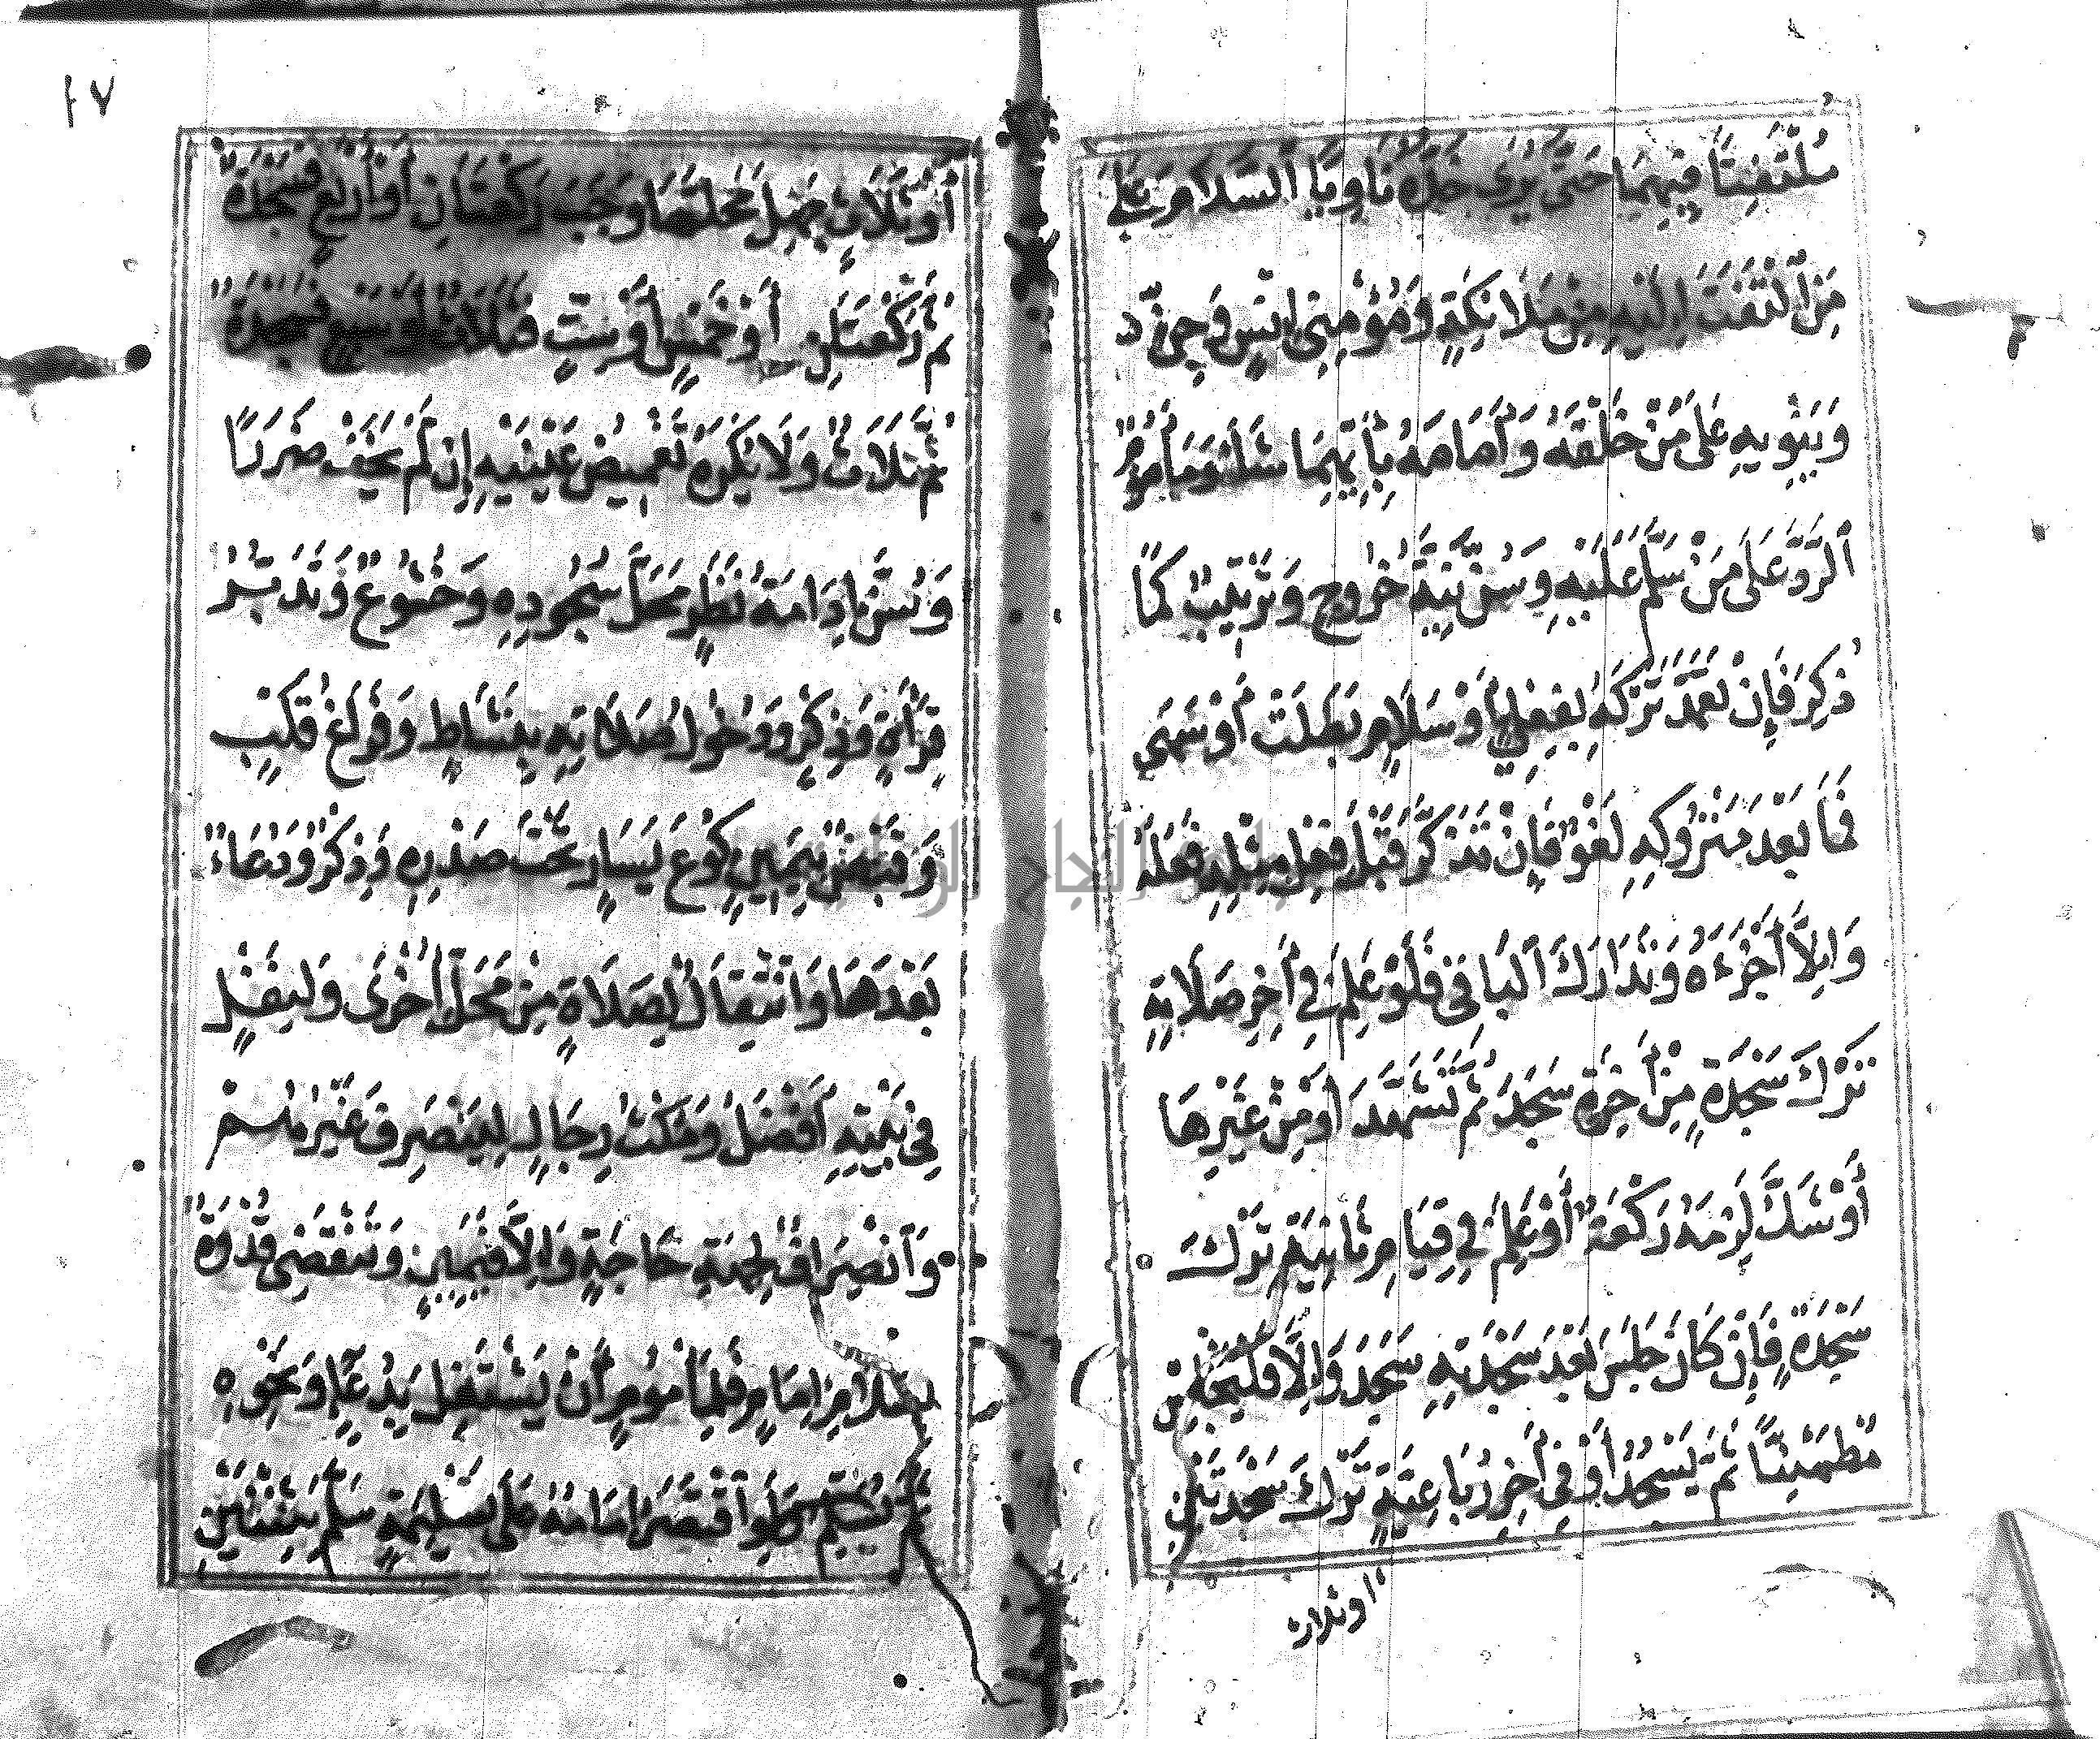 مُلْتَفِتًا فِيهِمَا حَتَّى يُرَى خَدُّهُ نَاوِيًا ٱلسَّلَامَ عَلَى
مَنِ ٱلْتَفَتَ إِلَيْهِ مِنْ مَلَائِكَةٍ وَمُؤْمِنِي إِنْسٍ وَجِنٍّ
وَيَنْوِيهِ عَلَى مَنْ خَلْفَهُ وَأَمَامَهُ بِأَيِّهِمَا شَاءَ وَمَأْمُومٌ
ٱلرَّدَّ عَلَى مَنْ سَلَّمَ عَلَيْهِ وَسُنَّ نِيَّةُ خُرُوجٍ وَتَرْتِيبٌ كَمَا
ذُكِرَ فَإِنْ تَعَمَّدَ تَرْكَهُ بِفِعْلِيٍّ أَوْ سَلَامٍ بَطَلَتْ أَوْ سَهَى
فَمَا بَعْدَ مَتْرُوكِهِ لَغْوٌ فَإِنْ تَذَكَّرَ قَبْلَ فِعْلِ مِثْلِهِ فَعَلَهُ
وَإِلَّا أَجْزَءَهُ وَتَدَارَكَ ٱلْبَاقِى فَلَوْ عَلِمَ فِى أَخِرِ صَلَاتِهِ
تَرْكَ سَجْدَةٍ مِنْ أَخِرَةٍ سَجَدَ ثُمَّ تَشَهَّدَ أَوْ مِنْ غَيْرِهَا
أَوْ شَكَّ لَزِمَهُ رَكْعَةٌ أَوْ عَلِمَ فِى قِيَامِ ثَانِيَةٍ تَرْكَ
سَجْدَةٍ فَإِنْ كَانَ جَلَسَ بَعْدَ سَجْدَتِهِ سَجَدَ وَإِلَّا فَلْيَجْلِسْ
مُطْمَئِنًّا ثُمَّ يَسْجُدُ أَوْ فِى أَخِرِ رُبَاعِيَةٍ تَرْكَ سَجْدَتَيْنِ
اوثلاث
١٧
أَوْ ثَلَاثٍ جَهِلَ مَحَلَّهَا وَجَبَ رَكْعَتَانِ أَوْ أَرْبَعٍ فَسَجْدَةٌ
ثُمَّ رَكْعَتَانِ أَوْ خَمْسٍ أَوْ سِتٍّ فَثَلَاثٌ أَوْ سَبْعٍ فَسَجْدَةٌ
ثُمَّ ثَلَاثٌ وَلَا يُكْرَهُ تَغْمِيضُ عَيْنَيْهِ إِنْ لَمْ يَخَفْ ضَرَرًا
وَسُنَّ إِدَامَةُ نَظَرِ مَحَلِّ سُجُودِهِ وَخُشُوعٌ وَتَدَبُّرُ
قِرَأَةٍ وَذِكْرٍ وَدُخُولُ صَلَاتِهِ بِنَشَاطٍ وَفَرَاغِ قَلْبٍ
وَقَبْضٌ بِيَمِينٍ كُوعَ يَسَارٍ تَحْتَ صَدْرِهِ وَذِكْرٌ وَدُعَاءٌ
بَعْدَهَا وَٱنْتِقَالٌ لِصَلَاةٍ مِنْ مَحَلِّ أُخْرَى وَلِنَفْلٍ
فِى بَيْتِهِ أَفْضَلُ وَمَكْثُ رِجَالٍ لِيَنْصَرِفَ غَيْرُهُمْ
وَٱنْصِرَافٌ لِجِهَةِ حَاجَةٍ وَإِلَّا فَيَمِينٍ وَتَنْقَضِى قُدْوَةٌ
بِسَلَامِ إِمَامٍ فَلِمَأْمُومٍ أَنْ يَشْتَغِلَ بِدُعَاءٍ وَنَحْوِهِ
ثُمَّ يُسَلِّمُ وَلَوِ ٱقْتَصَرَ إِمَامُهُ عَلَى تَسْلِيمَةٍ سَلَّمَ ثِنْتَيْنِ